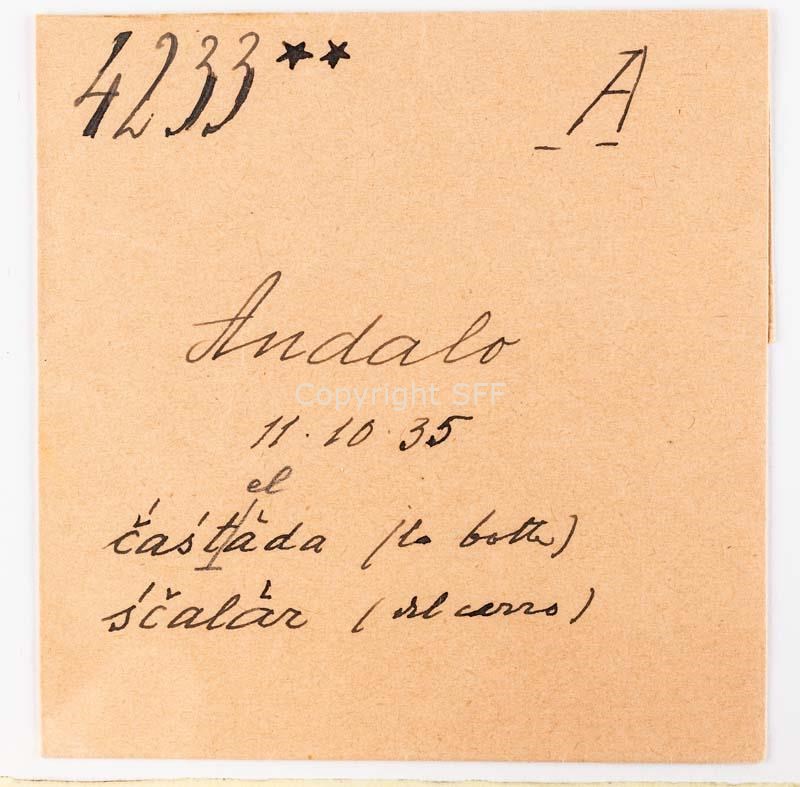 4233★★ A
Andalo
Copyright SFF
11.10.35
el
čaśtàda (la botte)
ščalàr (del carro)